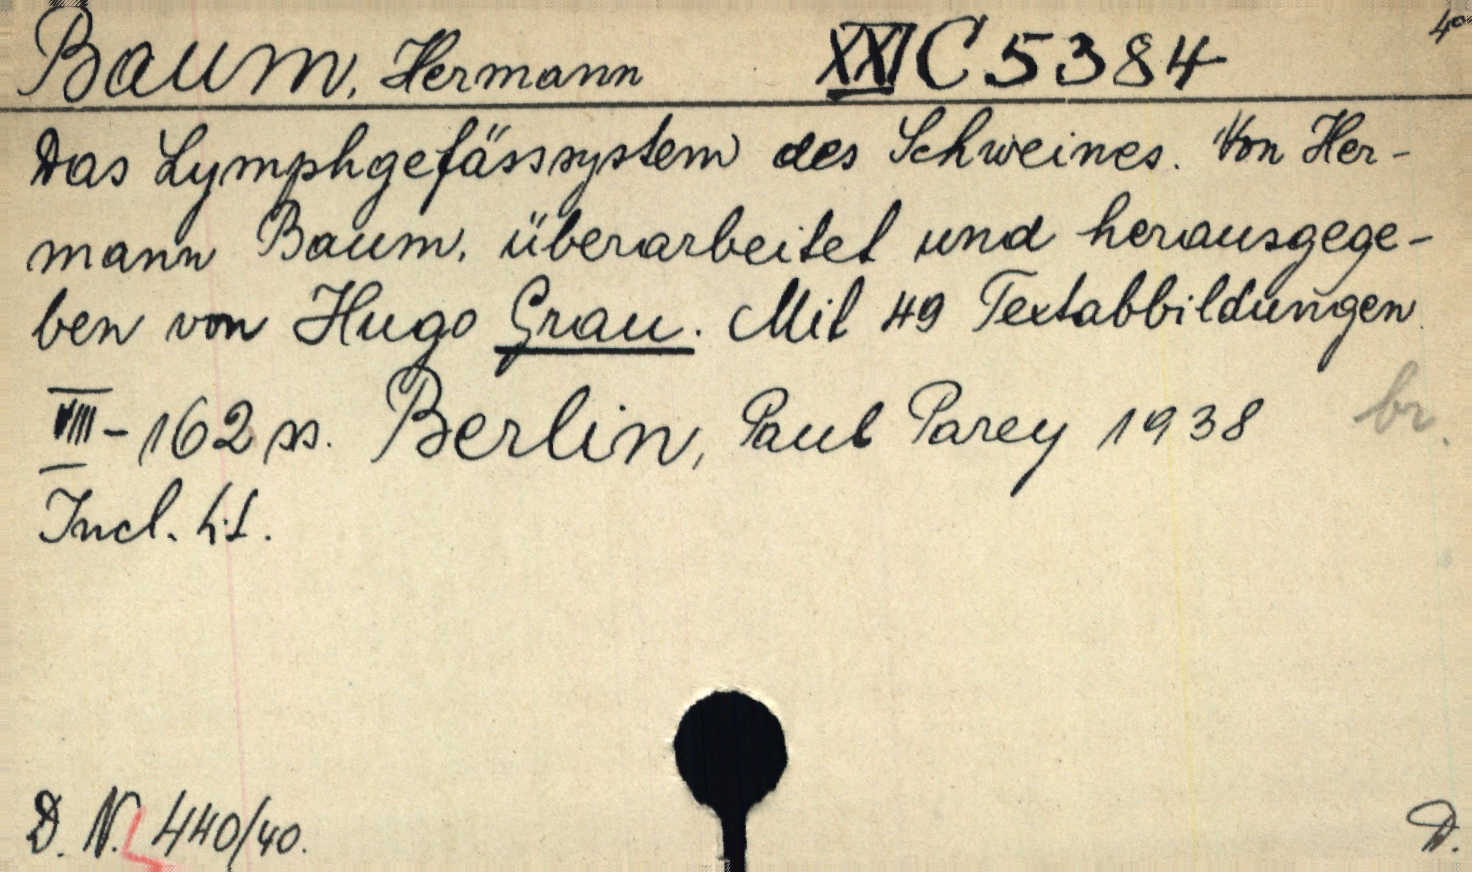 Baum, Hermann XXI C 5384 4°
Das Lymphgefässsystem des Schweines. Von Her-
mann Baum, überarbeitet und herausgege-
ben von Hugo Grau. Mit 49 Textabbildungen.
VIII-162 ss. Berlin, Paul Parey 1938 br.
Incl.
D. N. 440/40. D.